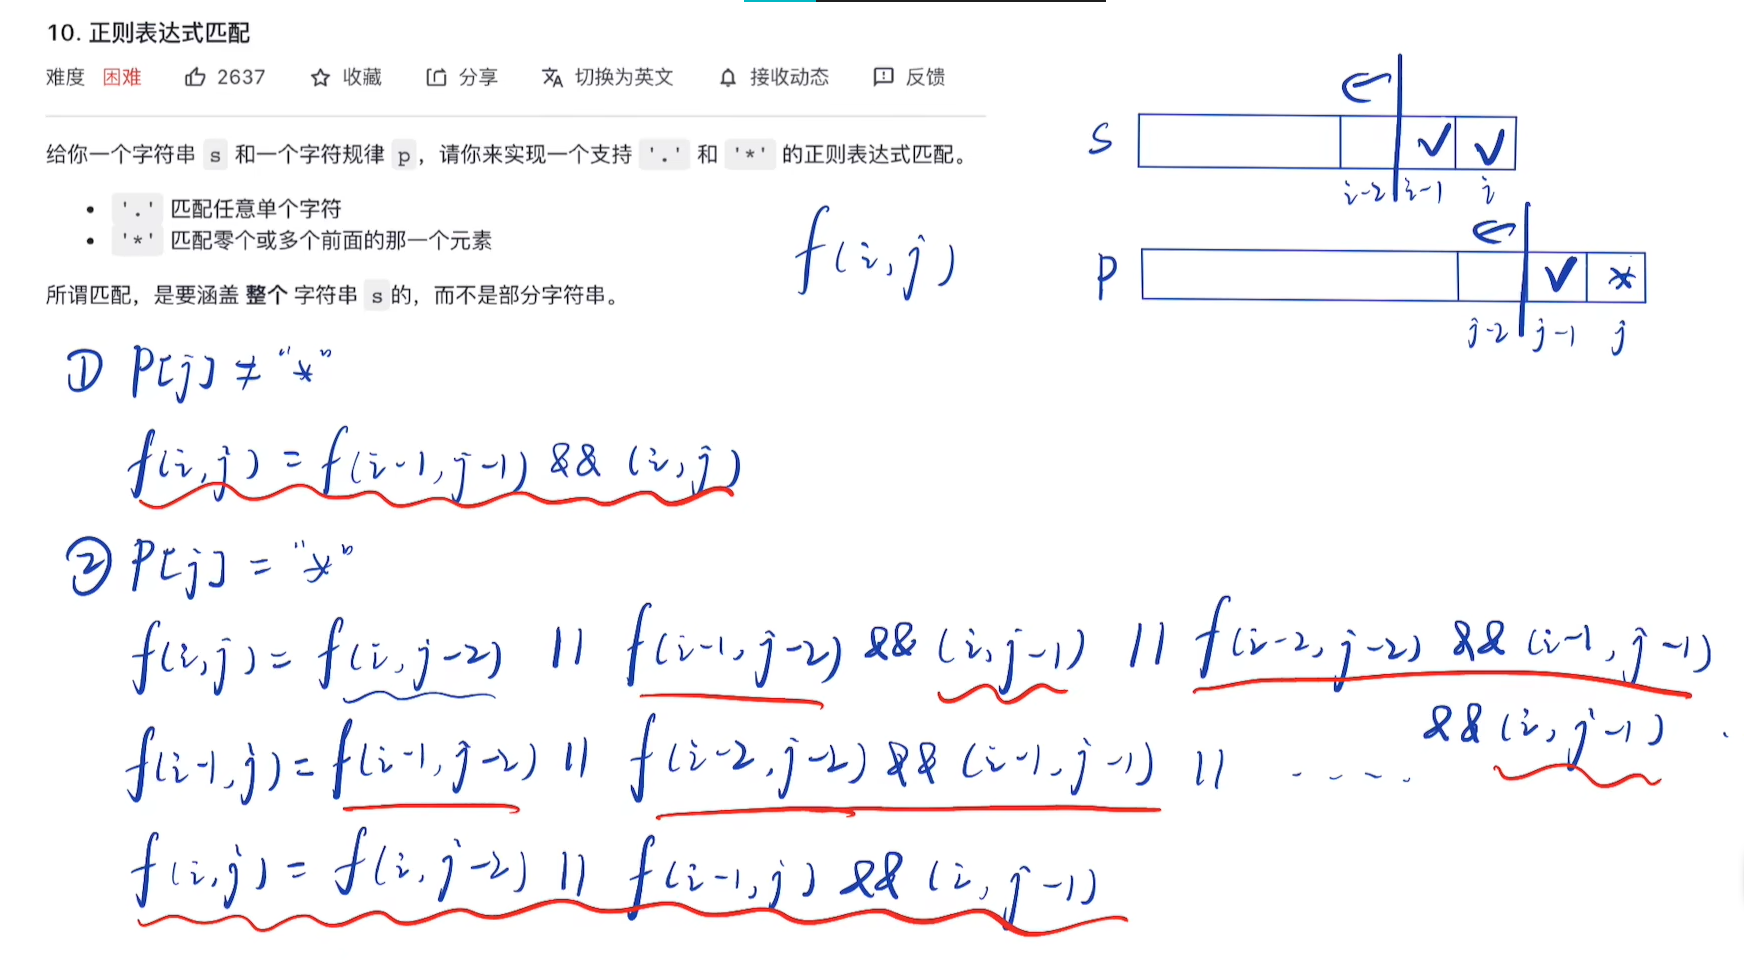 10. 正则表达式匹配
难度 困难 2637 收藏 分享 切换为英文 接收动态 反馈
给你一个字符串 s 和一个字符规律 p，请你来实现一个支持 '.' 和 '*' 的正则表达式匹配。
'.' 匹配任意单个字符
'*' 匹配零个或多个前面的那一个元素
所谓匹配，是要涵盖 整个 字符串 s 的，而不是部分字符串。
s
i-2 i-1 i
f(i,j)
p *
j-2 j-1 j
① P[j] ≠ "*"
f(i,j) = f(i-1,j-1) && (i,j)
② P[j] = "*"
f(i,j) = f(i,j-2) || f(i-1,j-2) && (i,j-1) || f(i-2,j-2) && (i-1,j-1)
&& (i,j-1)
f(i-1,j) = f(i-1,j-2) || f(i-2,j-2) && (i-1,j-1) || ....
f(i,j) = f(i,j-2) || f(i-1,j) && (i,j-1)